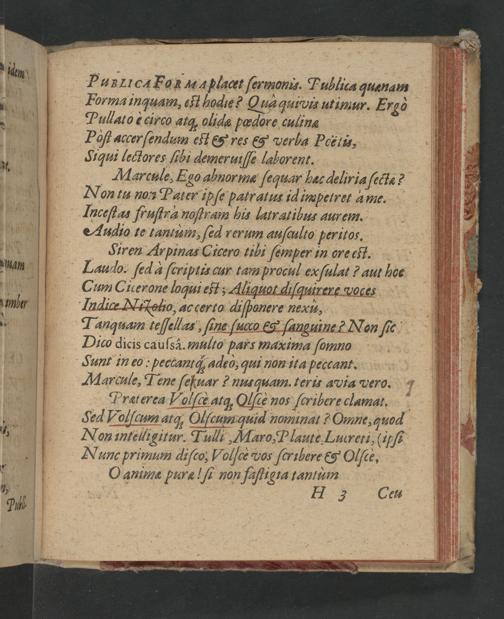 idem
PUBLICA FORMA placet sermonis. Publica quænam
Forma inquam, est hodie? Quâ quivis utimur. Ergò
Pullato è circo atq, olidæ pædore culinæ
Pòst accersendum est & res & verba Poëtis,
Siqui lectores sibi demeruisse laborent.
Marcule, Ego abnormæ sequar hæc deliria sectæ?
Non tu non Pater ipse patratus id impetret à me.
Incestas frustrà nostram his latratibus aurem.
Audio te tantùm, sed rerum ausculto peritos.
Siren Arpinas Cicero tibi semper in ore est.
Laudo: sed à scriptis cur tam procul exsulat? aut hoc
Cum Cicerone loqui est; Aliquot disquirere voces
Indice Nizolio, ac certo disponere nexu,
Tanquam tessellas, sine succo & sanguine? Non sic
Dico dicis caussâ. multo pars maxima somno
Sunt in eo: peccantq, adeò, qui non ita peccant.
Marcule, Tene sequar? nusquam. teris avia vero.
Præterea Volscè atq, Olscè nos scribere clamat.
Sed Volscum atq, Olscum quid nominat? Omne, quod
Non intelligitur. Tulli, Maro, Plaute, Lucreti, (ipsi
Nunc primum disco) Volscè vos scribere & Olscè,
O animæ puræ! si non fastigia tantùm
H 3 Ceu
Publi-